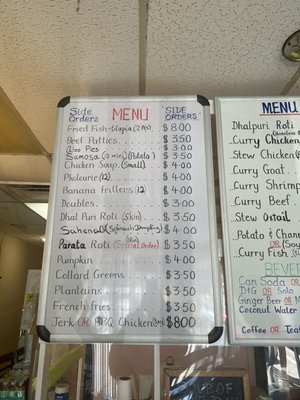 Side Orders MENU SIDE ORDERS
Fried Fish-tilapia (2 pcs) $8.00
Beef Patties $3.50
Aloo Pies $3.00
Samosa (2 mini) (Potato) $3.50
Chicken Soup (Small) $4.00
Pholourie (12 $4.00
Banana Fritters (12 $4.00
Doubles $3.00
Dhal Puri Roti (Skin) $3.50
Saheena $4.00
Parata Roti (Special Order) $3.50
Pumpkin $4.00
Collard Greens $3.50
Plantains $3.50
French fries $3.50
Jerk OR BBQ Chicken $8.00
MENU
Dhalpuri Roti
Curry Chicken
Stew Chicken
Curry Goat
Curry Shrimp
Curry Beef
Stew Oxtail
Potato & Chann
OR
Curry Fish
BEVER
Can Soda OR
DIG OR Solo
Ginger Beer OR
Coconut Water
Coffee OR Tea